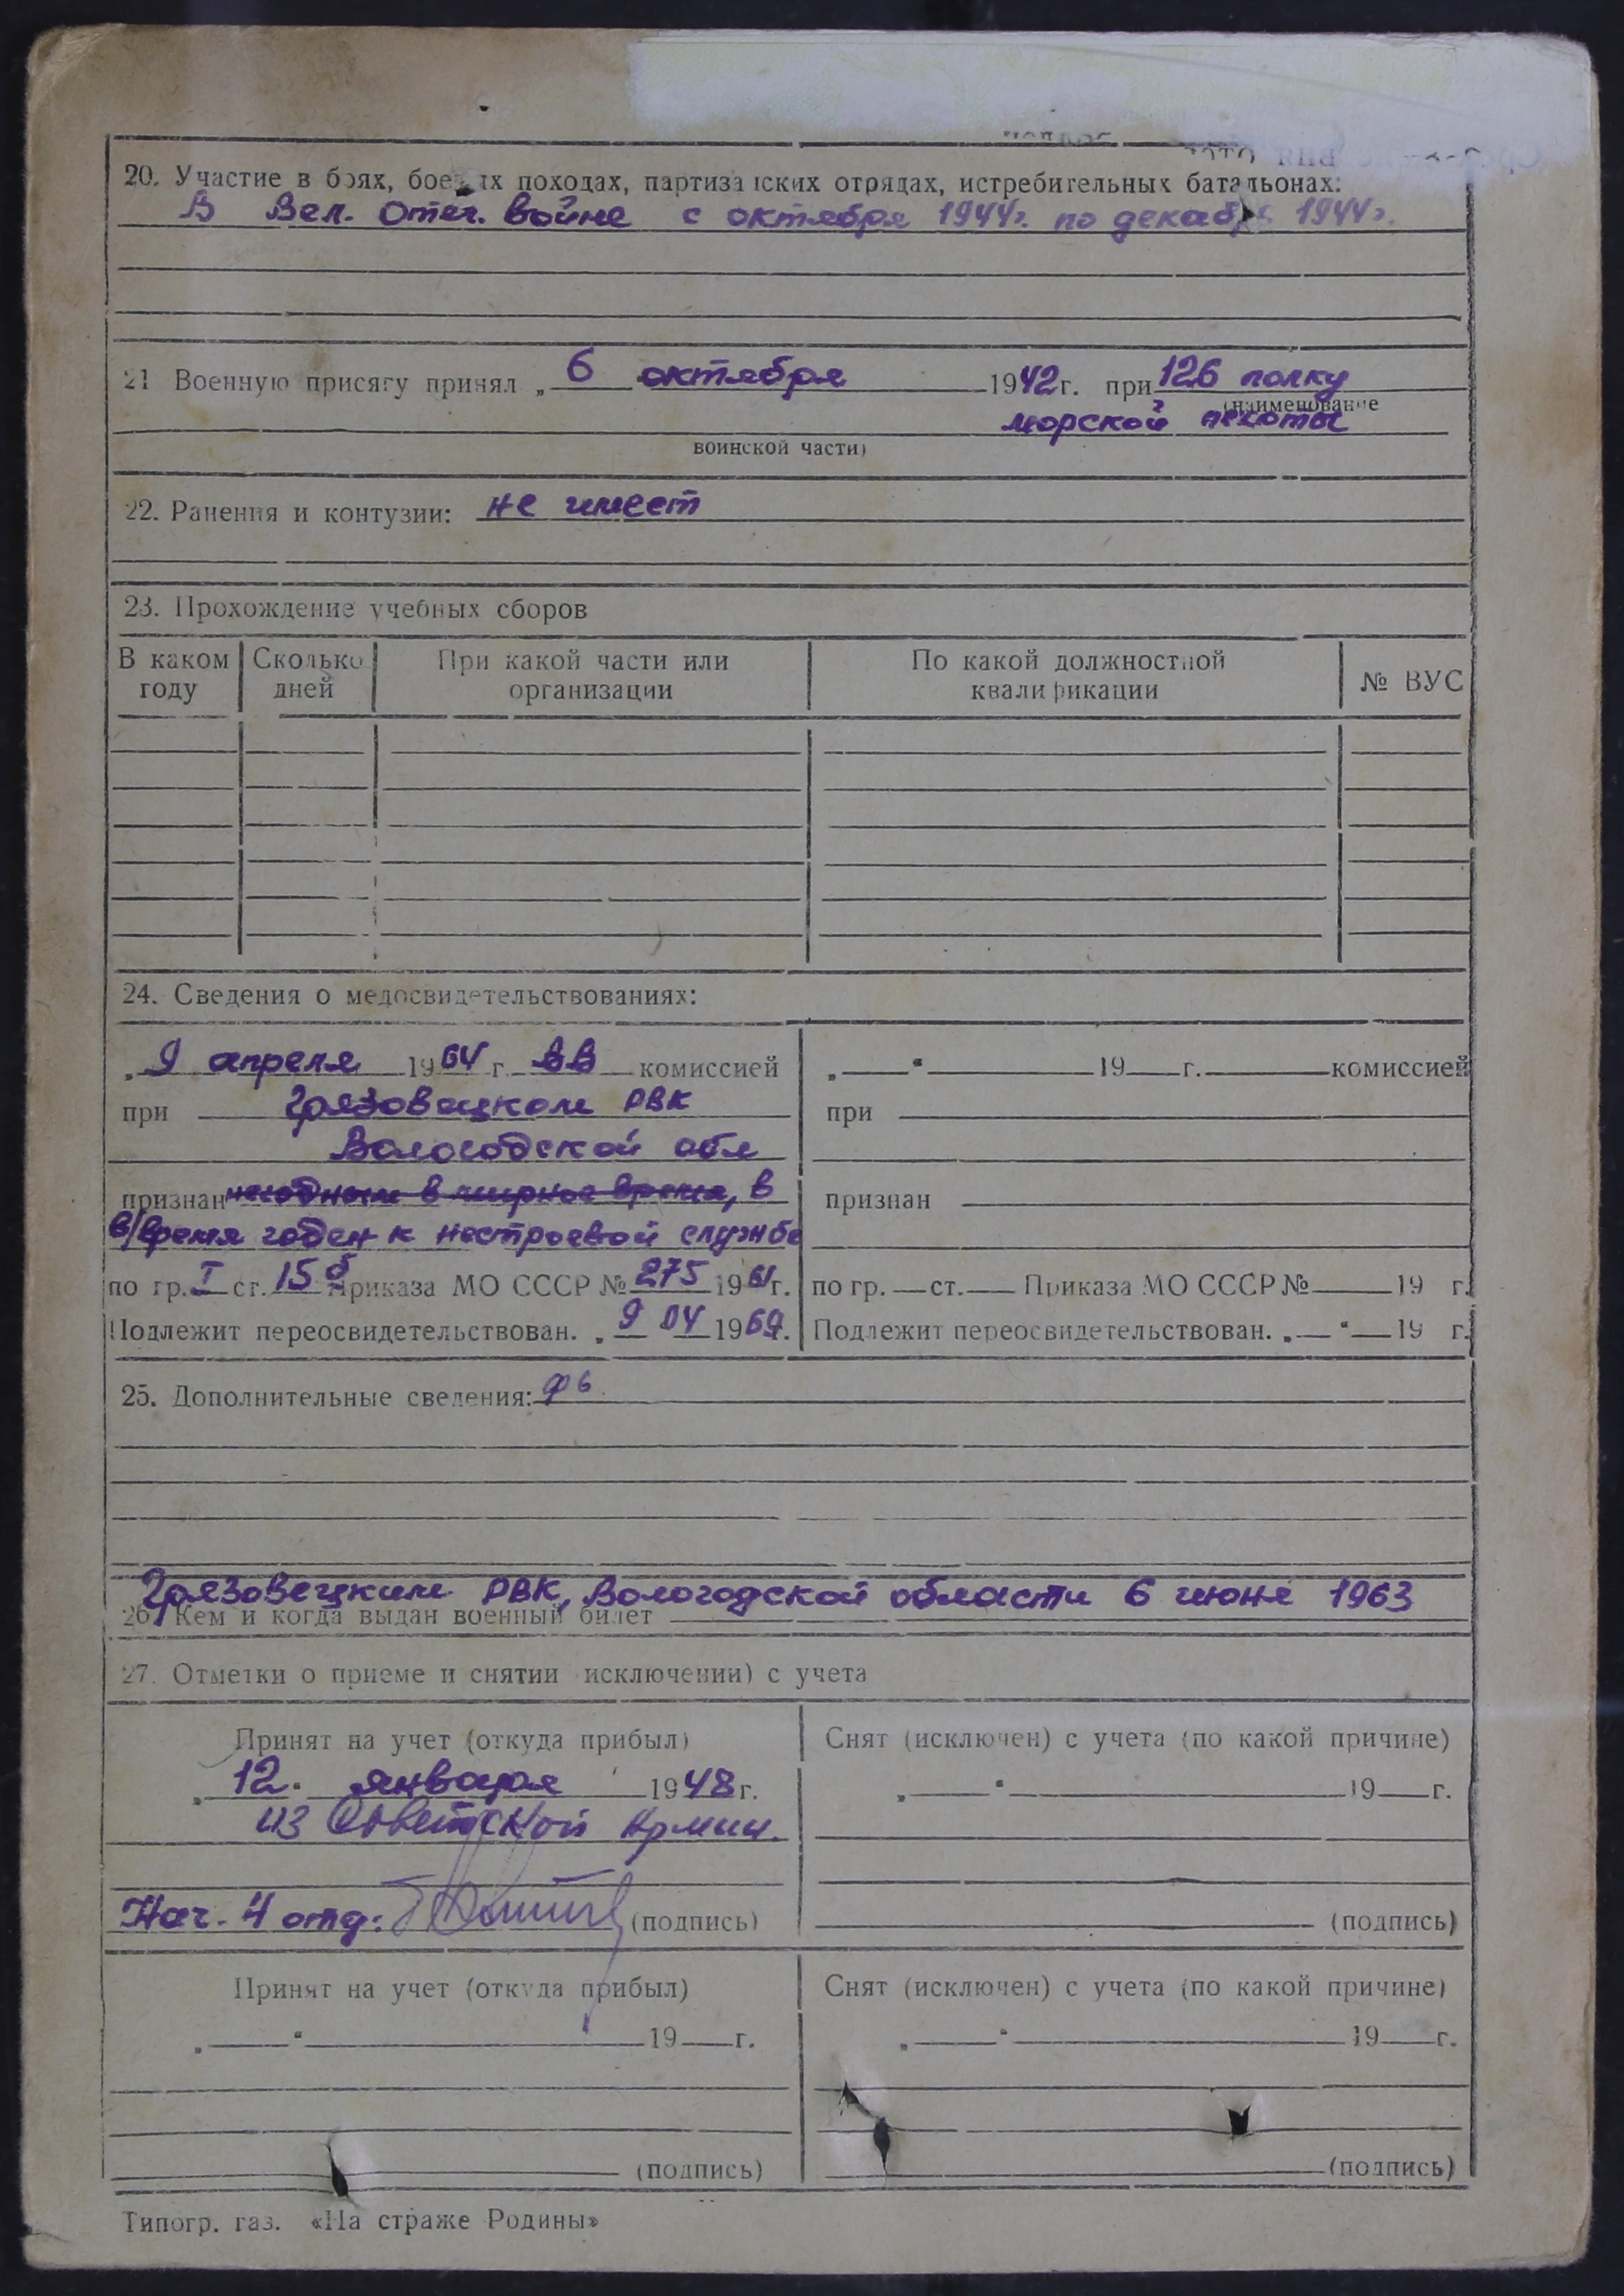 20. Участие в боях, боевых походах, партизанских отрядах, истребительных батальонах:
В Вел. Отеч. войне с октября 1944г. по декабрь 1944г.
21 Военную присягу принял „ 6 октября 1942 г. при 126 полку
(наименование
морской пехоты
воинской части)
22. Ранения и контузии: не имеет
23. Прохождение учебных сборов
В каком году Сколько дней При какой части или организации По какой должностной квалификации № ВУС
24. Сведения о медосвидетельствованиях:
„ 9 апреля 1964 г. ВВ комиссией
при Грязовецком РВК
Вологодской обл
признан негодным в мирное время, в
в/время годен к нестроевой службе
по гр. I ст. 15 б Приказа МО СССР № 275 1961г.
Подлежит переосвидетельствован. „ 9 04 1969г.
„ “ 19 г. комиссией
при
признан
по гр. ст. Приказа МО СССР № 19 г.
Подлежит переосвидетельствован. „ “ 19 г.
25. Дополнительные сведения:
Грязовецким РВК, Вологодской области 6 июня 1963
26. Кем и когда выдан военный билет
27. Отметки о приеме и снятии исключении) с учета
Принят на учет (откуда прибыл)
„ 12. января 1948 г.
из Советской Армии.
Нач. 4 отд: (подпись)
Снят (исключен) с учета (по какой причине)
„ “ 19 г.
(подпись)
Принят на учет (откуда прибыл)
„ “ 19 г.
(подпись)
Снят (исключен) с учета (по какой причине)
„ “ 19 г.
(подпись)
Типогр. газ. «На страже Родины»